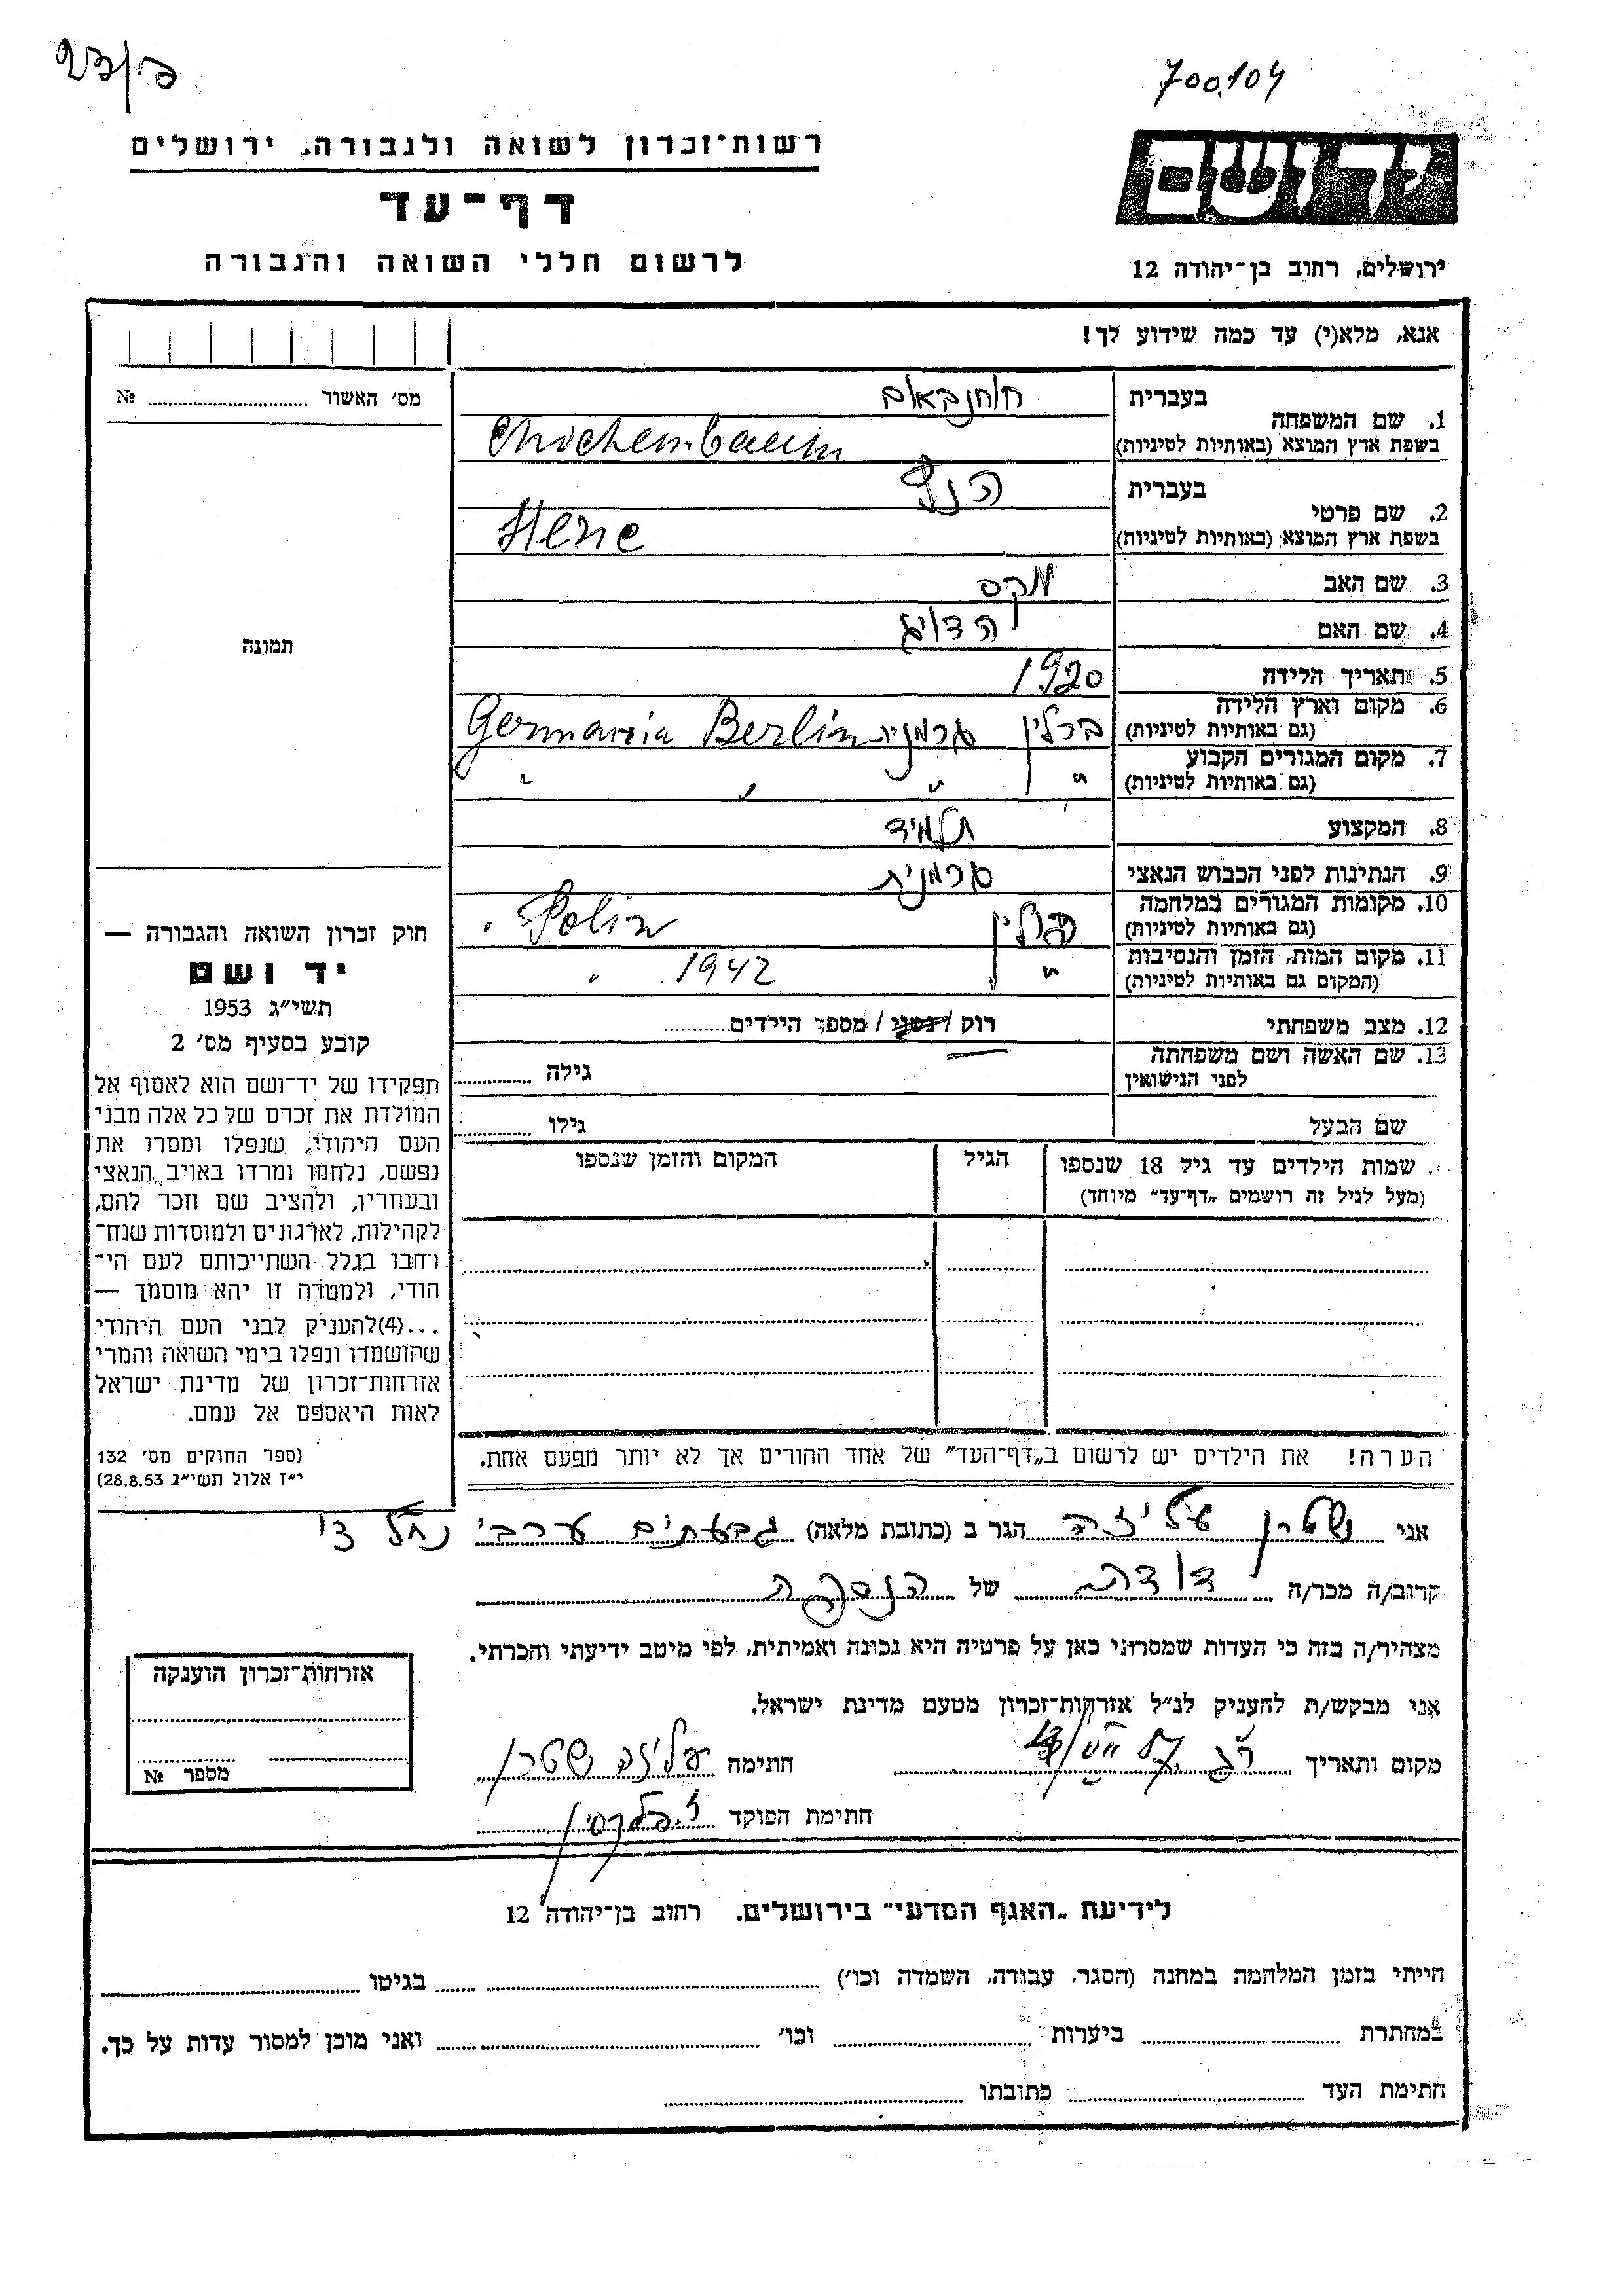 700104
רשות־זכרון לשואה ולגבורה, ירושלים
יד ושם
דף־עד
לרשום חללי השואה והגבורה
ירושלים, רחוב בן־יהודה 12
אנא, מלא(י) עד כמה שידוע לך!
מס׳ האשור № 
1. שם המשפחה
בעברית
בשפת ארץ המוצא (באותיות לטיניות)
Chichembaum
2. שם פרטי
בעברית
בשפת ארץ המוצא (באותיות לטיניות)
Hene
3. שם האב מקס
4. שם האם הדויג
5. תאריך הלידה 1920
6. מקום וארץ הלידה ברלין גרמניה Berlin Germania
(גם באותיות לטיניות)
7. מקום המגורים הקבוע " " " "
(גם באותיות לטיניות)
8. המקצוע תלמיד
9. הנתינות לפני הכבוש הנאצי גרמנית
10. מקומות המגורים במלחמה פולין Polin
(גם באותיות לטיניות)
11. מקום המות, הזמן והנסיבות " 1942 "
(המקום גם באותיות לטיניות)
12. מצב משפחתי רוק / נשוי / מספר הילדים
13. שם האשה ושם משפחתה גילה
לפני הנישואין
שם הבעל גילו
שמות הילדים עד גיל 18 שנספו הגיל המקום והזמן שנספו
(מעל לגיל זה רושמים „דף־עד״ מיוחד)
הערה! את הילדים יש לרשום ב„דף־העד״ של אחד ההורים אך לא יותר מפעם אחת.
תמונה
חוק זכרון השואה והגבורה —
יד ושם
תשי״ג 1953
קובע בסעיף מס׳ 2
תפקידו של יד־ושם הוא לאסוף אל
המולדת את זכרם של כל אלה מבני
העם היהודי, שנפלו ומסרו את
נפשם, נלחמו ומרדו באויב הנאצי
ובעוזריו, ולהציב שם וזכר להם,
לקהילות, לארגונים ולמוסדות שנח־
רבו בגלל השתייכותם לעם הי־
הודי, ולמטרה זו יהא מוסמך —
...(4)להעניק לבני העם היהודי
שהושמדו ונפלו בימי השואה והמרי
אזרחות־זכרון של מדינת ישראל
לאות היאספם אל עמם.
(ספר החוקים מס׳ 132
י״ז אלול תשי״ג 28.8.53)
אני שטרן עליזה הגר ב (כתובת מלאה) גבעתים ערבי נחל
קרוב/ה מכר/ה דודה של הנספה
מצהיר/ה בזה כי העדות שמסרתי כאן על פרטיה היא נכונה ואמיתית, לפי מיטב ידיעתי והכרתי.
אני מבקש/ת להעניק לנ״ל אזרחות־זכרון מטעם מדינת ישראל.
מקום ותאריך חתימה עליזה שטרן
חתימת הפוקד
אזרחות־זכרון הוענקה
מספר №
לידיעת „האגף המדעי״ בירושלים. רחוב בן־יהודה 12
הייתי בזמן המלחמה במחנה (הסגר, עבודה, השמדה וכו׳) בגיטו
במחתרת ביערות וכו׳ ואני מוכן למסור עדות על כך.
חתימת העד כתובתו